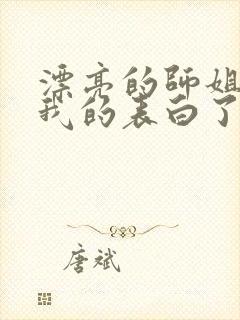 漂亮的师姐
我的表白了
唐斌